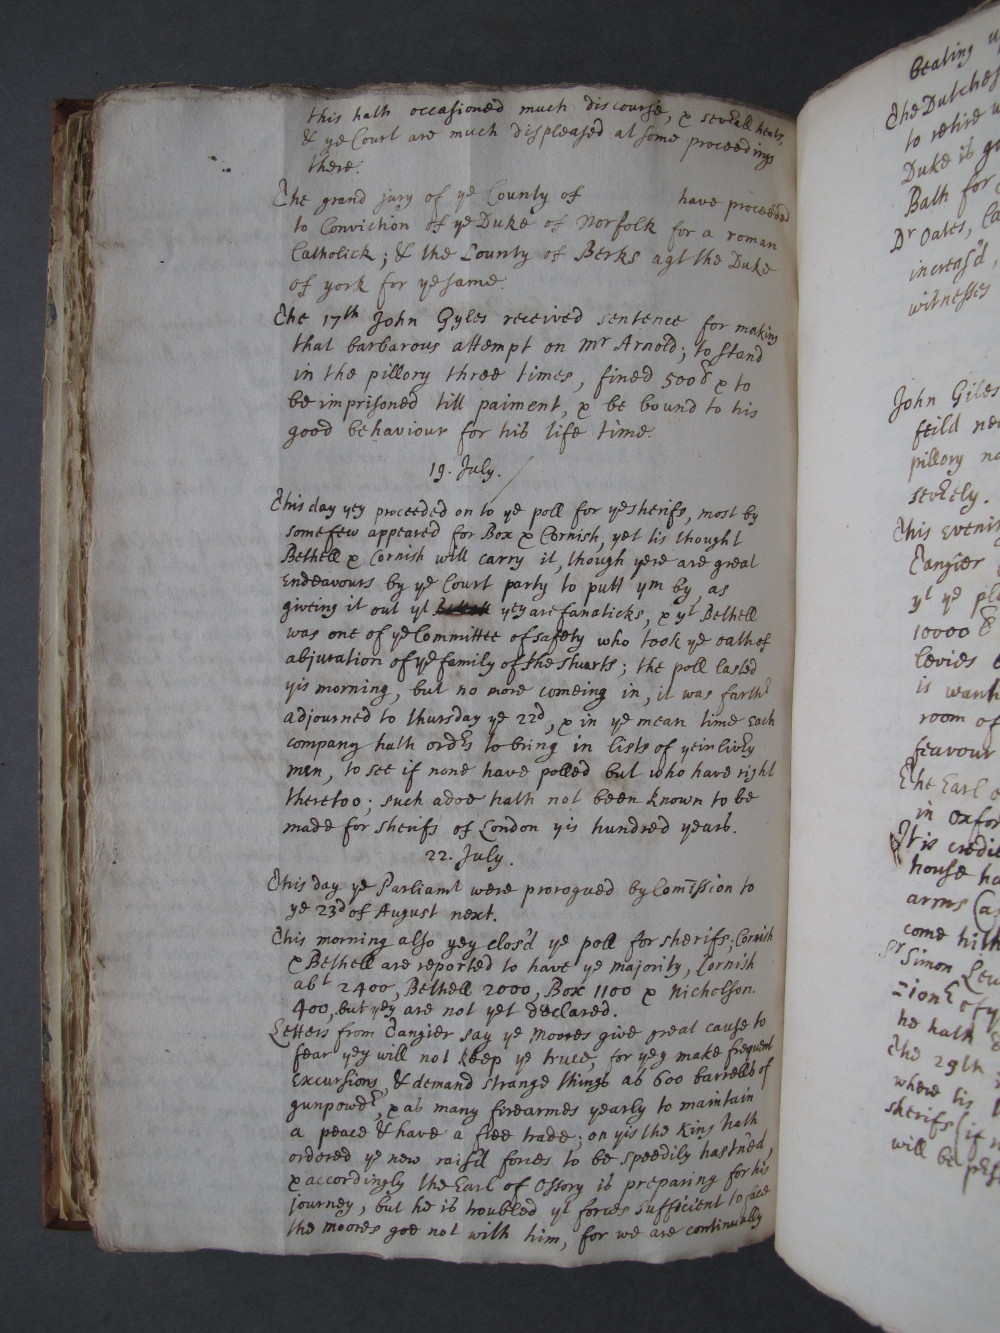 this hath occasioned much discourse, & sev:all heats,
& ye Court are much displeased at some proceedings
there.
The grand jury of ye County of have proceeded
to Conviction of ye Duke of Norfolk for a roman
Catholick; & the County of Berks agt the Duke
of york for ye same.
The 17th John Gyles received sentence for making
that barbarous attempt on Mr Arnold; to stand
in the pillory three times, fined 500£ & to
be imprisoned till paiment, & be bound to his
good behaviour for his life time.
19. July.
This day yey proceeded on to ye poll for ye sherifs, most by
some few appeared for Box & Cornish, yet tis thought
Bethell & Cornish will carry it, though yere are great
Endeavours by ye Court party to putt ym by, as
giveing it out yt yey are fanaticks, & yt Bethell
was one of ye Committee of safety who took ye oath of
abjuration of ye family of the Stuarts; the poll lasted
yis morning, but no more comeing in, it was farthr
adjourned to thursday ye 22d, & in ye mean time Each
company hath ordrs to bring in lists of yeir livery
men, to see if none have polled but who have right
theretoo; such adoe hath not been known to be
made for sherifs of London yis hundred years.
22. July.
This day ye Parliamt were prorogued by Comission to
ye 23d of August next.
This morning also yey clos'd ye poll for sherifs; Cornish
& Bethell are reported to have ye majority, Cornish
abt 2400, Bethell 2000, Box 1100 & Nicholson
400, but yey are not yet declared.
Letters from Tangier say ye Moores give great cause to
fear yey will not keep ye truce, for yey make frequent
Excursions, & demand strange things as 600 barrells of
gunpowdr, & as many firearmes yearly to maintain
a peace & have a free trade; on yis the King hath
ordered ye new rais'd forces to be speedily hastned,
& accordingly the Earl of Ossory is preparing for his
journey, but he is troubled yt forces sufficient to face
the moores goe not with him, for we are continually
beating
The Dutches
to retire
Duke is
Bath for
Dr Oates,
increas'd,
witnesses
John Giles
feild
pillory
severely.
This Evening
Tangier
yt ye
10000£
levies
is
room of
feavour
The Earl
in
It is
house
arms
come
Sr Simon
of
he hath
The 29th
where tis
sherifs (if
will be